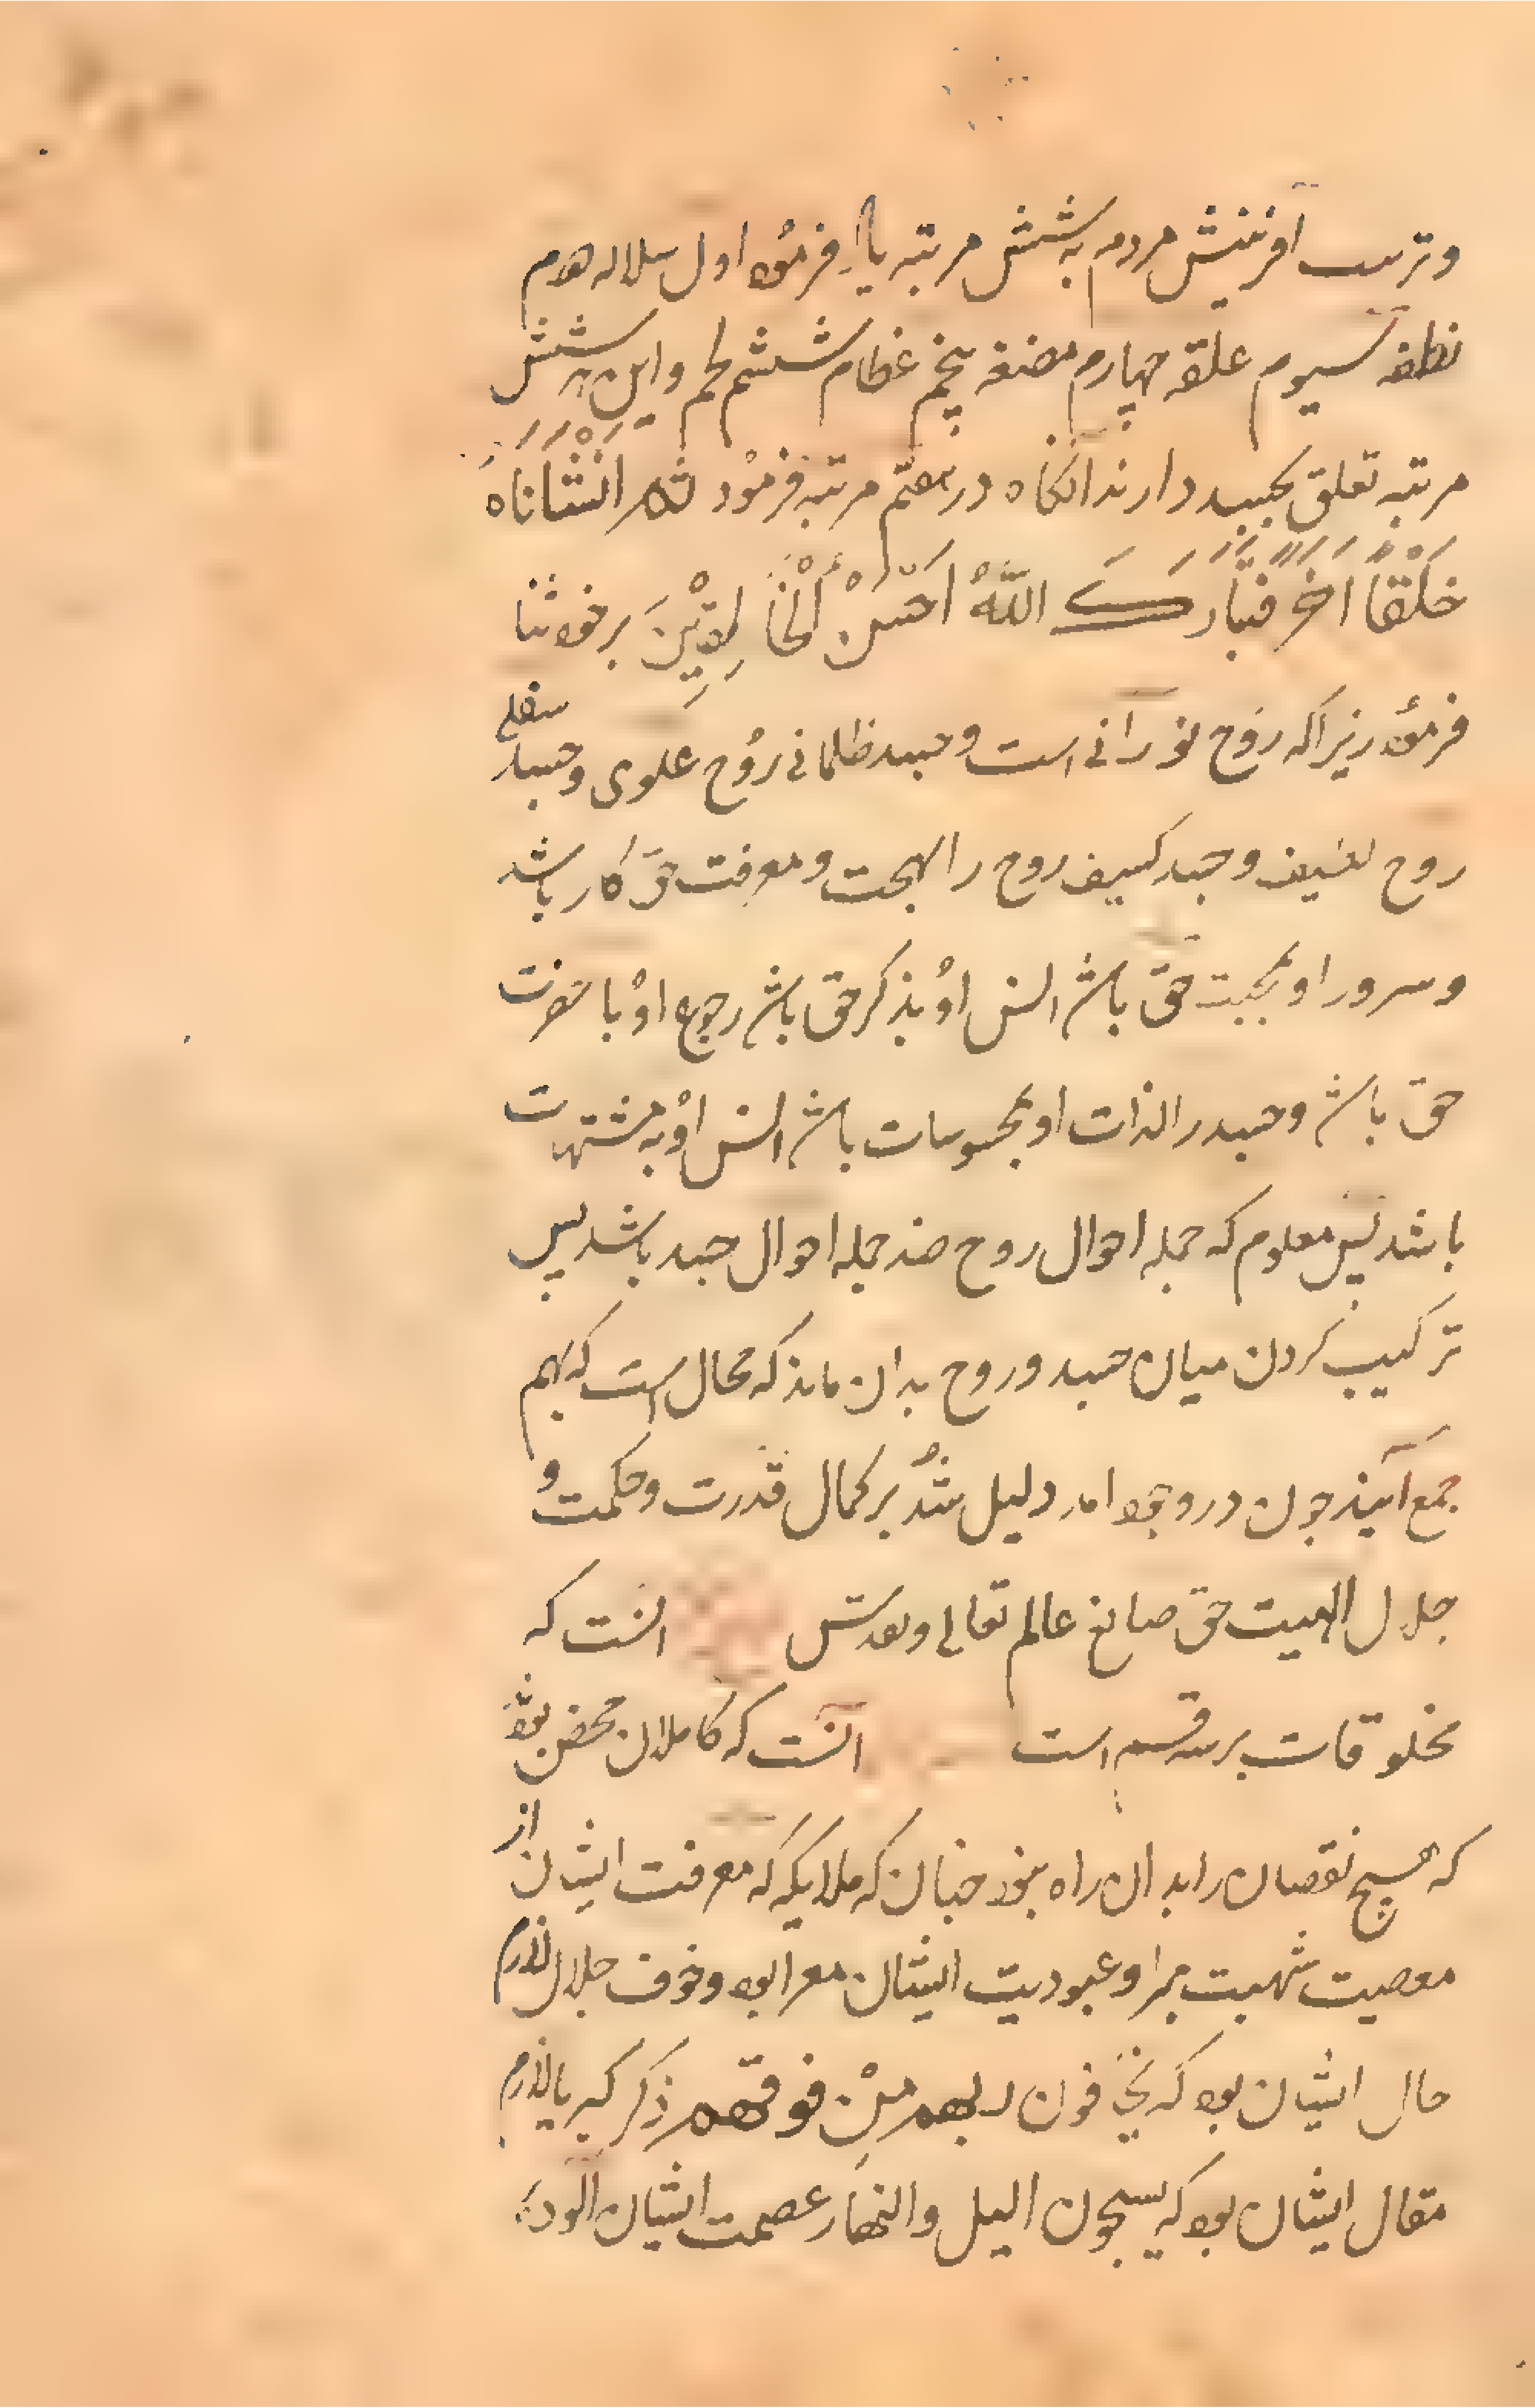 وترتیب آفرینش مردم به شش مرتبه یاد فرموده اول سلاله دوم
نطفه سیوم علقه چهارم مضغه پنجم عظام ششم لحم واین هر شش
مرتبه تعلق بجسد دارند آنکاه در هفتم مرتبه فرمود ثم انشاناه
خَلْقاً اخَرَ فتبارکَ اللّهُ احسنُ الْخالِقِیْنَ بر خود ثنا
فرمود زیراکه روح نورانی است وجسد ظلمانی روح علوی وجسد سفلی
روح لطیف وجسد کثیف روح را بهجت ومعرفت حق کار باشد
وسرور او بمحبت حق باشد انس او بذکر حق باشد رجوع او با حضرت
حق باشد وجسد را لذات او بمحسوسات باشد انس او به مشتهیات
باشد پس معلوم که جمله احوال روح ضد جمله احوال جسد باشد پس
ترکیب کردن میان جسد وروح بدان ماند که محال است که بهم
جمع آیند چون در وجود امد دلیل شد بر کمال قدرت وحکمت و
جلال الهیت حق صانع عالم تعالی وتقدس انست که
مخلوقات بر سه قسم است آنست که کاملان محض بود
که هیچ نقصان را بدان راه نبود چنان که ملایکه که معرفت ایشان از
معصیت شهبت مبرا وعبودیت ایشان معرا بود وخوف جلال لازم
حال ایشان بود که یخافون ربهم من فوقهم ذکر کبریا لازم
مقال ایشان بود که یسبحون الیل والنهار عصمت ایشان